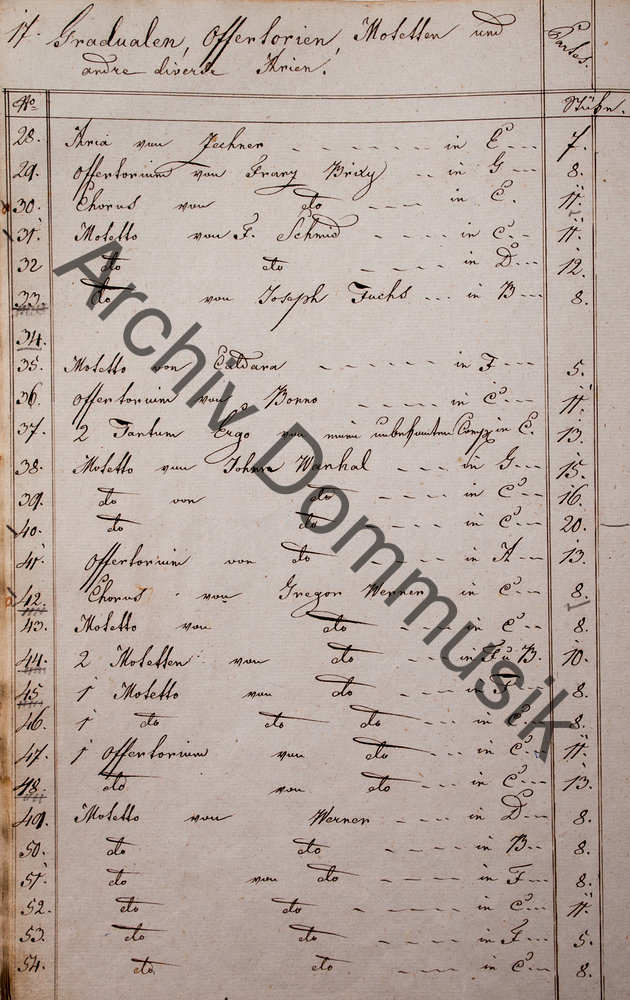 17. Gradualen, Offertorien, Motetten und Partes.
andre diverse Arien.
No Stükn.
28. Aria von Zechner in E 7.
29. Offertorium von Franz Brixy in G 8.
30. Chorus von do in C. 11.
31. Motetto von F. Schmid in C 11.
32 do do in D 12.
33. do von Joseph Fuchs in B 8.
34.
35. Motetto von Caldara in F 5.
36. Offertorium von Bonno in C 11.
37. 2 Tantum Ergo von einem unbekannten Comp in C. 13.
38. Motetto von Johann Wanhal in G 15.
39. do von do in C 16.
40. do do in C 20.
41. Offertorium von do in A 13.
42. Chorus von Gregor Werner in C 8.
43. Motetto von do in C 8.
44. 2 Motetten von do in F u B. 10.
45. 1 Motetto von do in F 8.
46. 1 do do do in C 8.
47. 1 Offertorium von do in C 11.
48. do von do in C 13.
49. Motetto von Werner in D 8.
50. do do in B 8.
51. do von do in F 8.
52. do do in C 11.
53. do do in F 5.
54. do do in C 8.
Archiv Dommusik